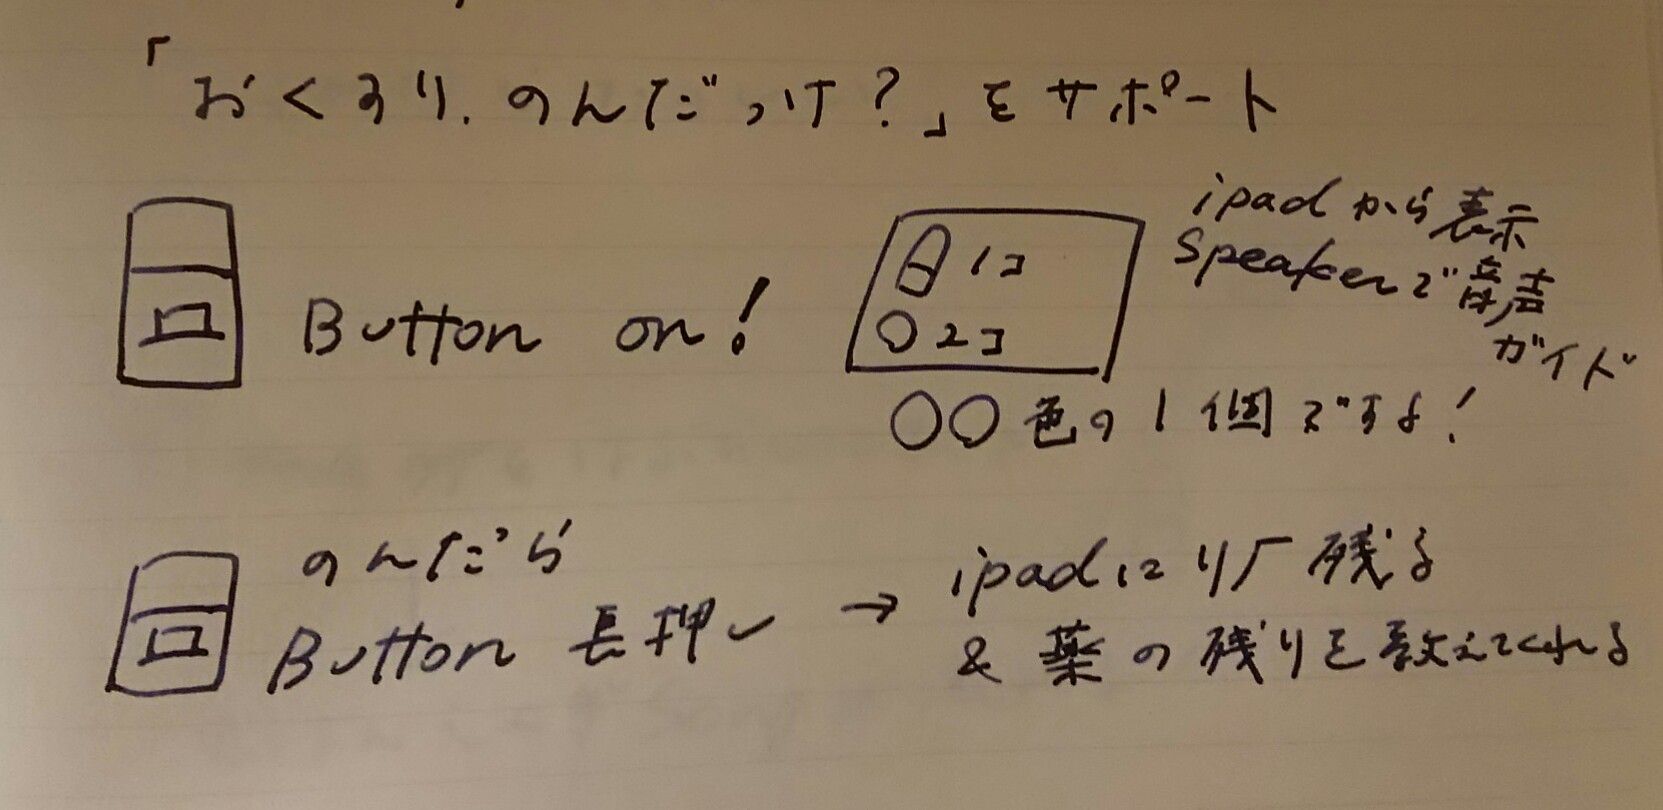 「おくすり、のんだっけ？」をサポート
Button on!
1コ
2コ
ipadから表示
Speakerで音声
ガイド
○○色の1個ですよ!
のんだら
Button 長押し
→ ipadに 残る
& 薬の残りを教えてくれる